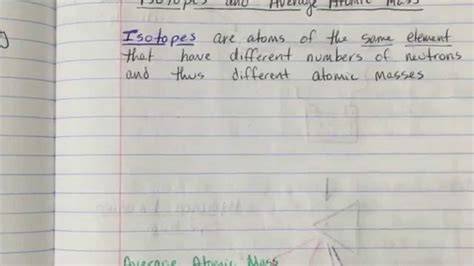 Isotopes and Average Atomic Mass
Isotopes are atoms of the same element
that have different numbers of neutrons
and thus different atomic masses
Average Atomic Mass